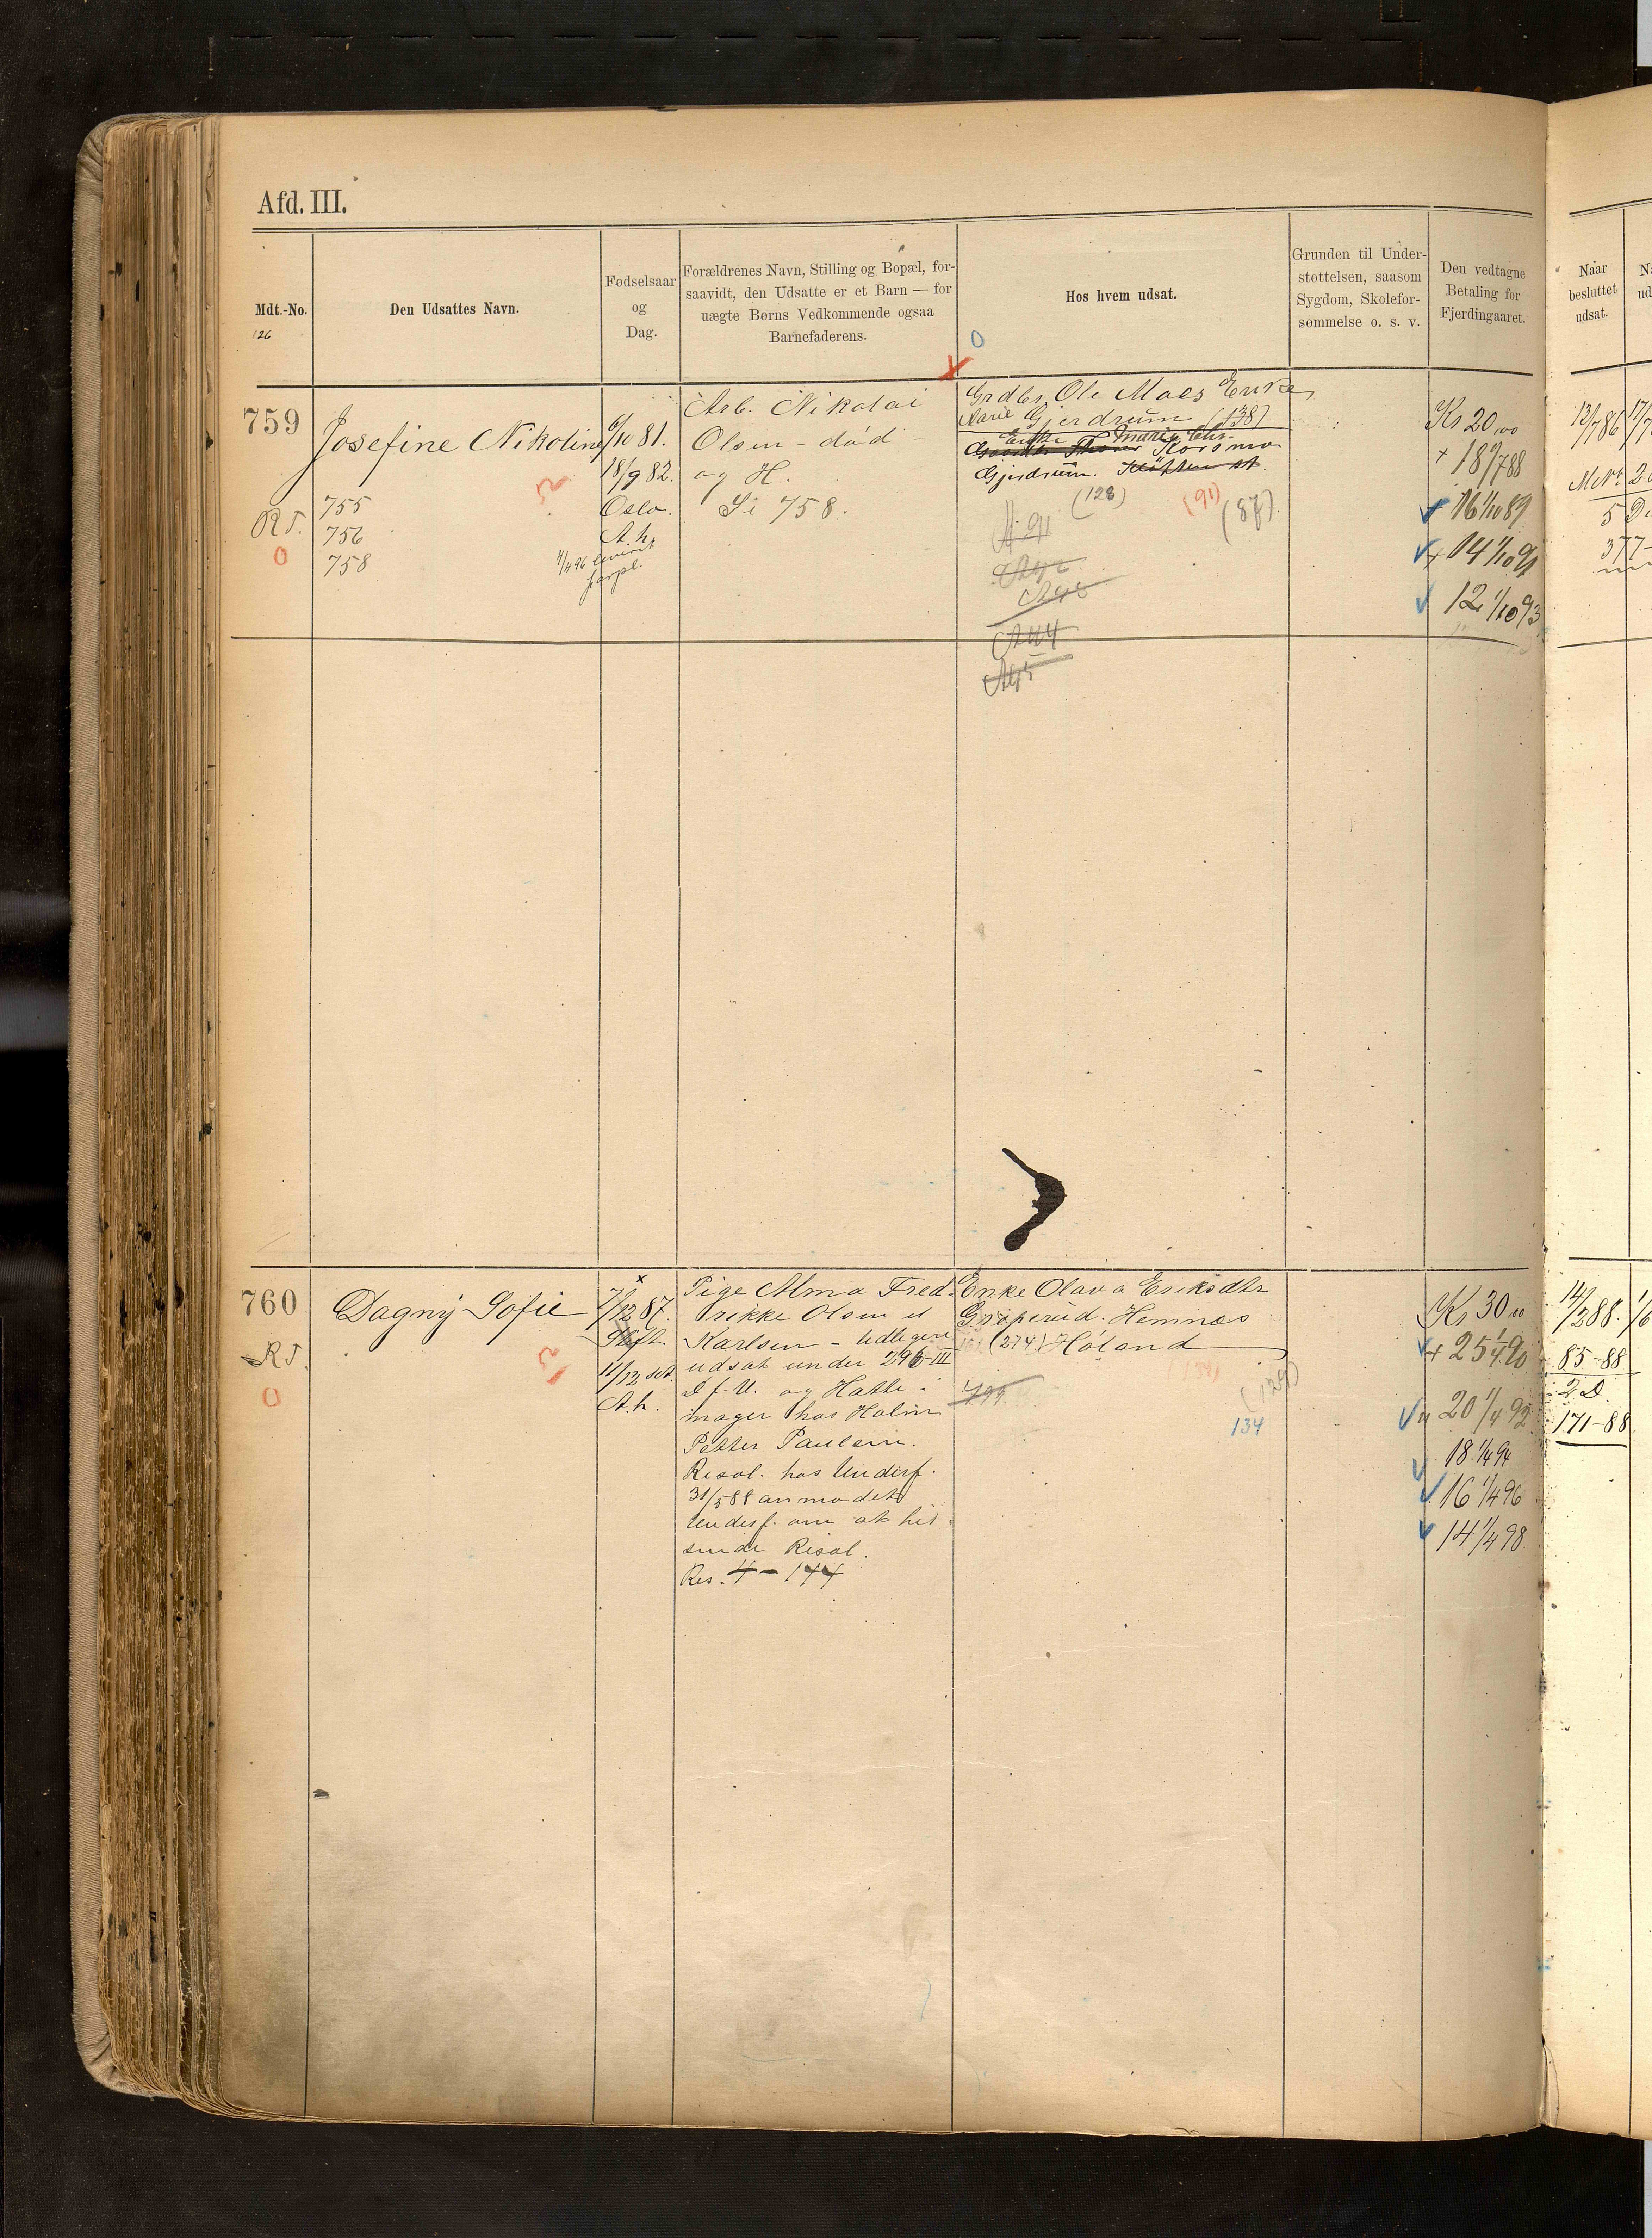 Afd. III.
Mdt.-No.
126
Den Udsattes Navn.
Fødselsaar
og
Dag.
Forældrenes Navn, Stilling og Bopæl, for-
saavidt, den Udsatte er et Barn — for
uægte Børns Vedkommende ogsaa
Barnefaderens.
Hos hvem udsat.
Grunden til Under-
støttelsen, saasom
Sygdom, Skolefor-
sømmelse o. s. v.
Den vedtagne
Betaling for
Fjerdingaaret.
Naar
besluttet
udsat.
759
R T.
0
Josefine Nikoline
755
756
758
6/10 81.
18/9 82.
Oslo.
A. h.
Arb. Nikolai
Olsen - död
og H.
Se 758.
Grdbr. Ole Moes Enke
Marie Gjerdrum (138)
Enke Marie Chr.
Korsmo
Gjerdrum. Kløften st.
(128) (91) (87)
A 91
Kr 20,00
+ 18 1/7 88
16 1/10 89
14 1/10 91
12 1/10 93
13/7 86
377-
760
R T.
0
Dagny Sofie
7/12 87.
Stift.
11/12 s. A.
A. h.
Pige Alma Fred-
rikke Olsen el
Karlsen - tidligere
udsat under 296-III
D. f. U. og Hatte-
mager hos Holm
Petter Paulsen.
Resol. hos Underf.
31/5 88 anmodet
Underf. om at hid-
sende Resol.
Res. 4 - 144
Enke Olava Eriksdtr
Griperud. Hemnæs
(274) Høland
(129)
134
Kr 30,00
+ 25 1/4 90
20 1/4 92
18 1/4 94
16 1/4 96
14 1/4 98.
14/2 88.
85-88
2 D
171-88